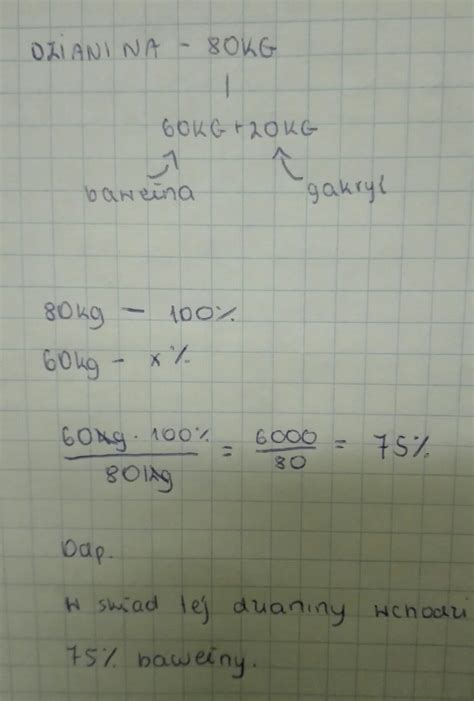 DZIANINA - 80KG
60KG + 20KG
bawełna gakryl
80kg - 100%
60kg - x%
60kg · 100% / 80kg = 6000 / 80 = 75%
Odp.
W skład tej dzianiny wchodzi
75% bawełny.